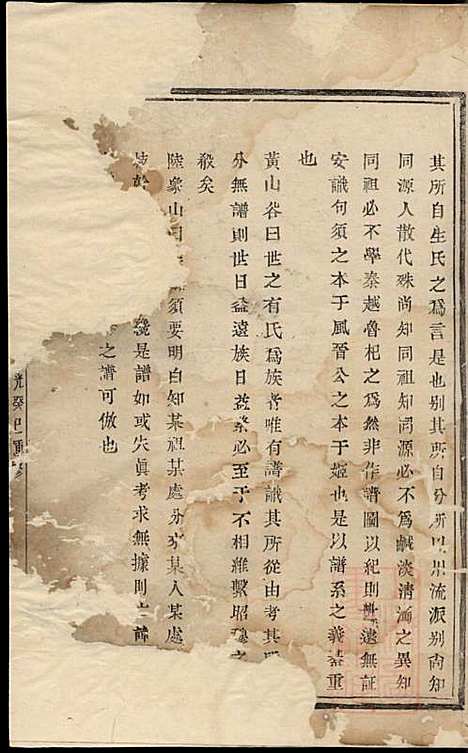 其所自生氏之為言是也别其所自分所以　流派别尚知
同源人散代殊尚知同祖知同源必不為鹹淡清濁之異知
同祖必不學秦越魯杞之為然非作譜圖以紀則世遠無証
安識句須之本于風晉公之本于姬也是以譜系之義益重
也
黃山谷曰世之有氏為族者唯有譜識其所從由考其
分無譜則世日益遠族日益繁必至于不相維繫昭穆之
殺矣
陸象山曰　須要明白知某祖某處分來某人某處
　是譜如或失真考求無據則
之譜可倣也
光癸巳重修